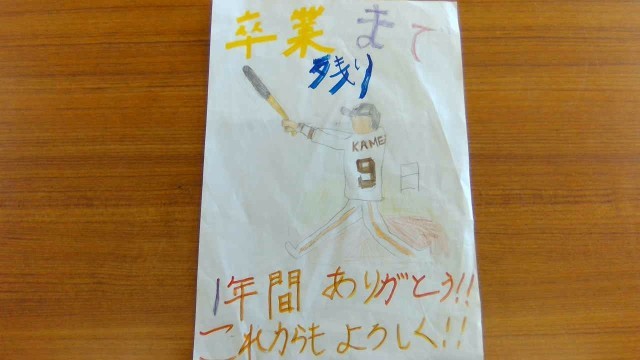 卒業まで
残り
KAMEI
9
日
1年間 ありがとう!!
これからも よろしく!!